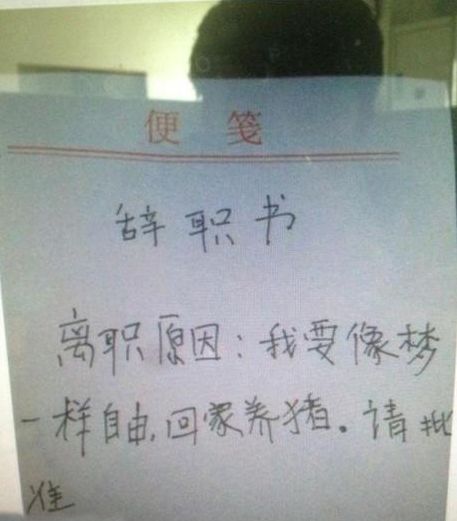 便 笺
辞职书
离职原因：我要像梦
一样自由，回家养猪。请批
准